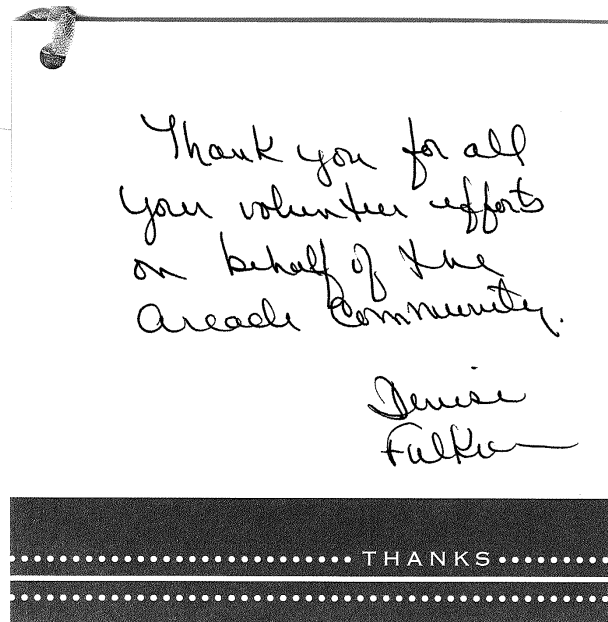 Thank you for all
your volunteer efforts
on behalf of the
Arcade Community.
Denise
THANKS